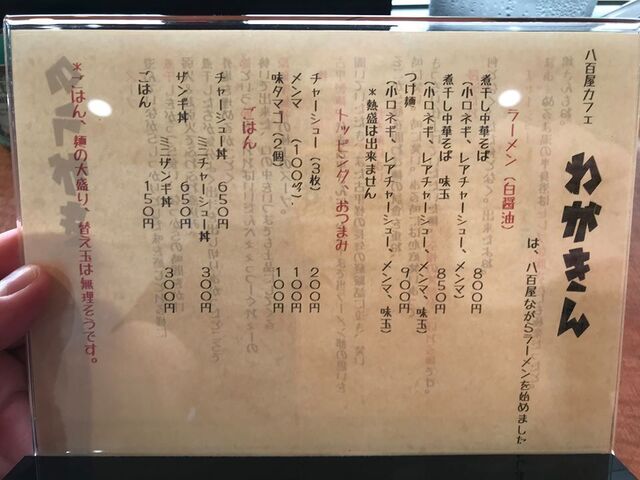 八百屋カフェ
わがきん
は、八百屋ながらラーメンを始めました
ラーメン（白醤油）
煮干し中華そば 800円
（小口ネギ、レアチャーシュー、メンマ）
煮干し中華そば 味玉 850円
（小口ネギ、レアチャーシュー、メンマ、味玉）
つけ麺 900円
（小口ネギ、レアチャーシュー、メンマ、味玉）
＊熱盛は出来ません
トッピング、おつまみ
チャーシュー（3枚） 200円
メンマ （100㌘） 100円
味タマゴ（2個） 100円
ごはん
チャーシュー丼 650円
ミニチャーシュー丼 300円
ザンギ丼 650円
ミニザンギ丼 300円
ごはん 150円
＊ごはん、麺の大盛り、替え玉は無理そうです。